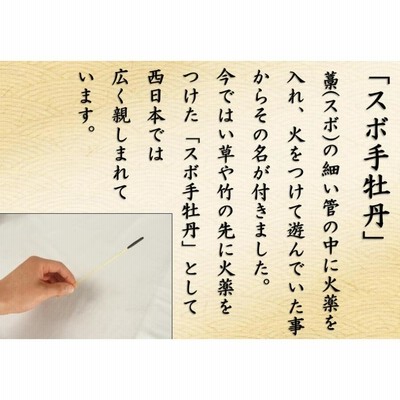 「スボ手牡丹」
藁(スボ)の細い管の中に火薬を
入れ、火をつけて遊んでいた事
からその名が付きました。
今ではい草や竹の先に火薬を
つけた「スボ手牡丹」として
西日本では
広く親しまれて
います。